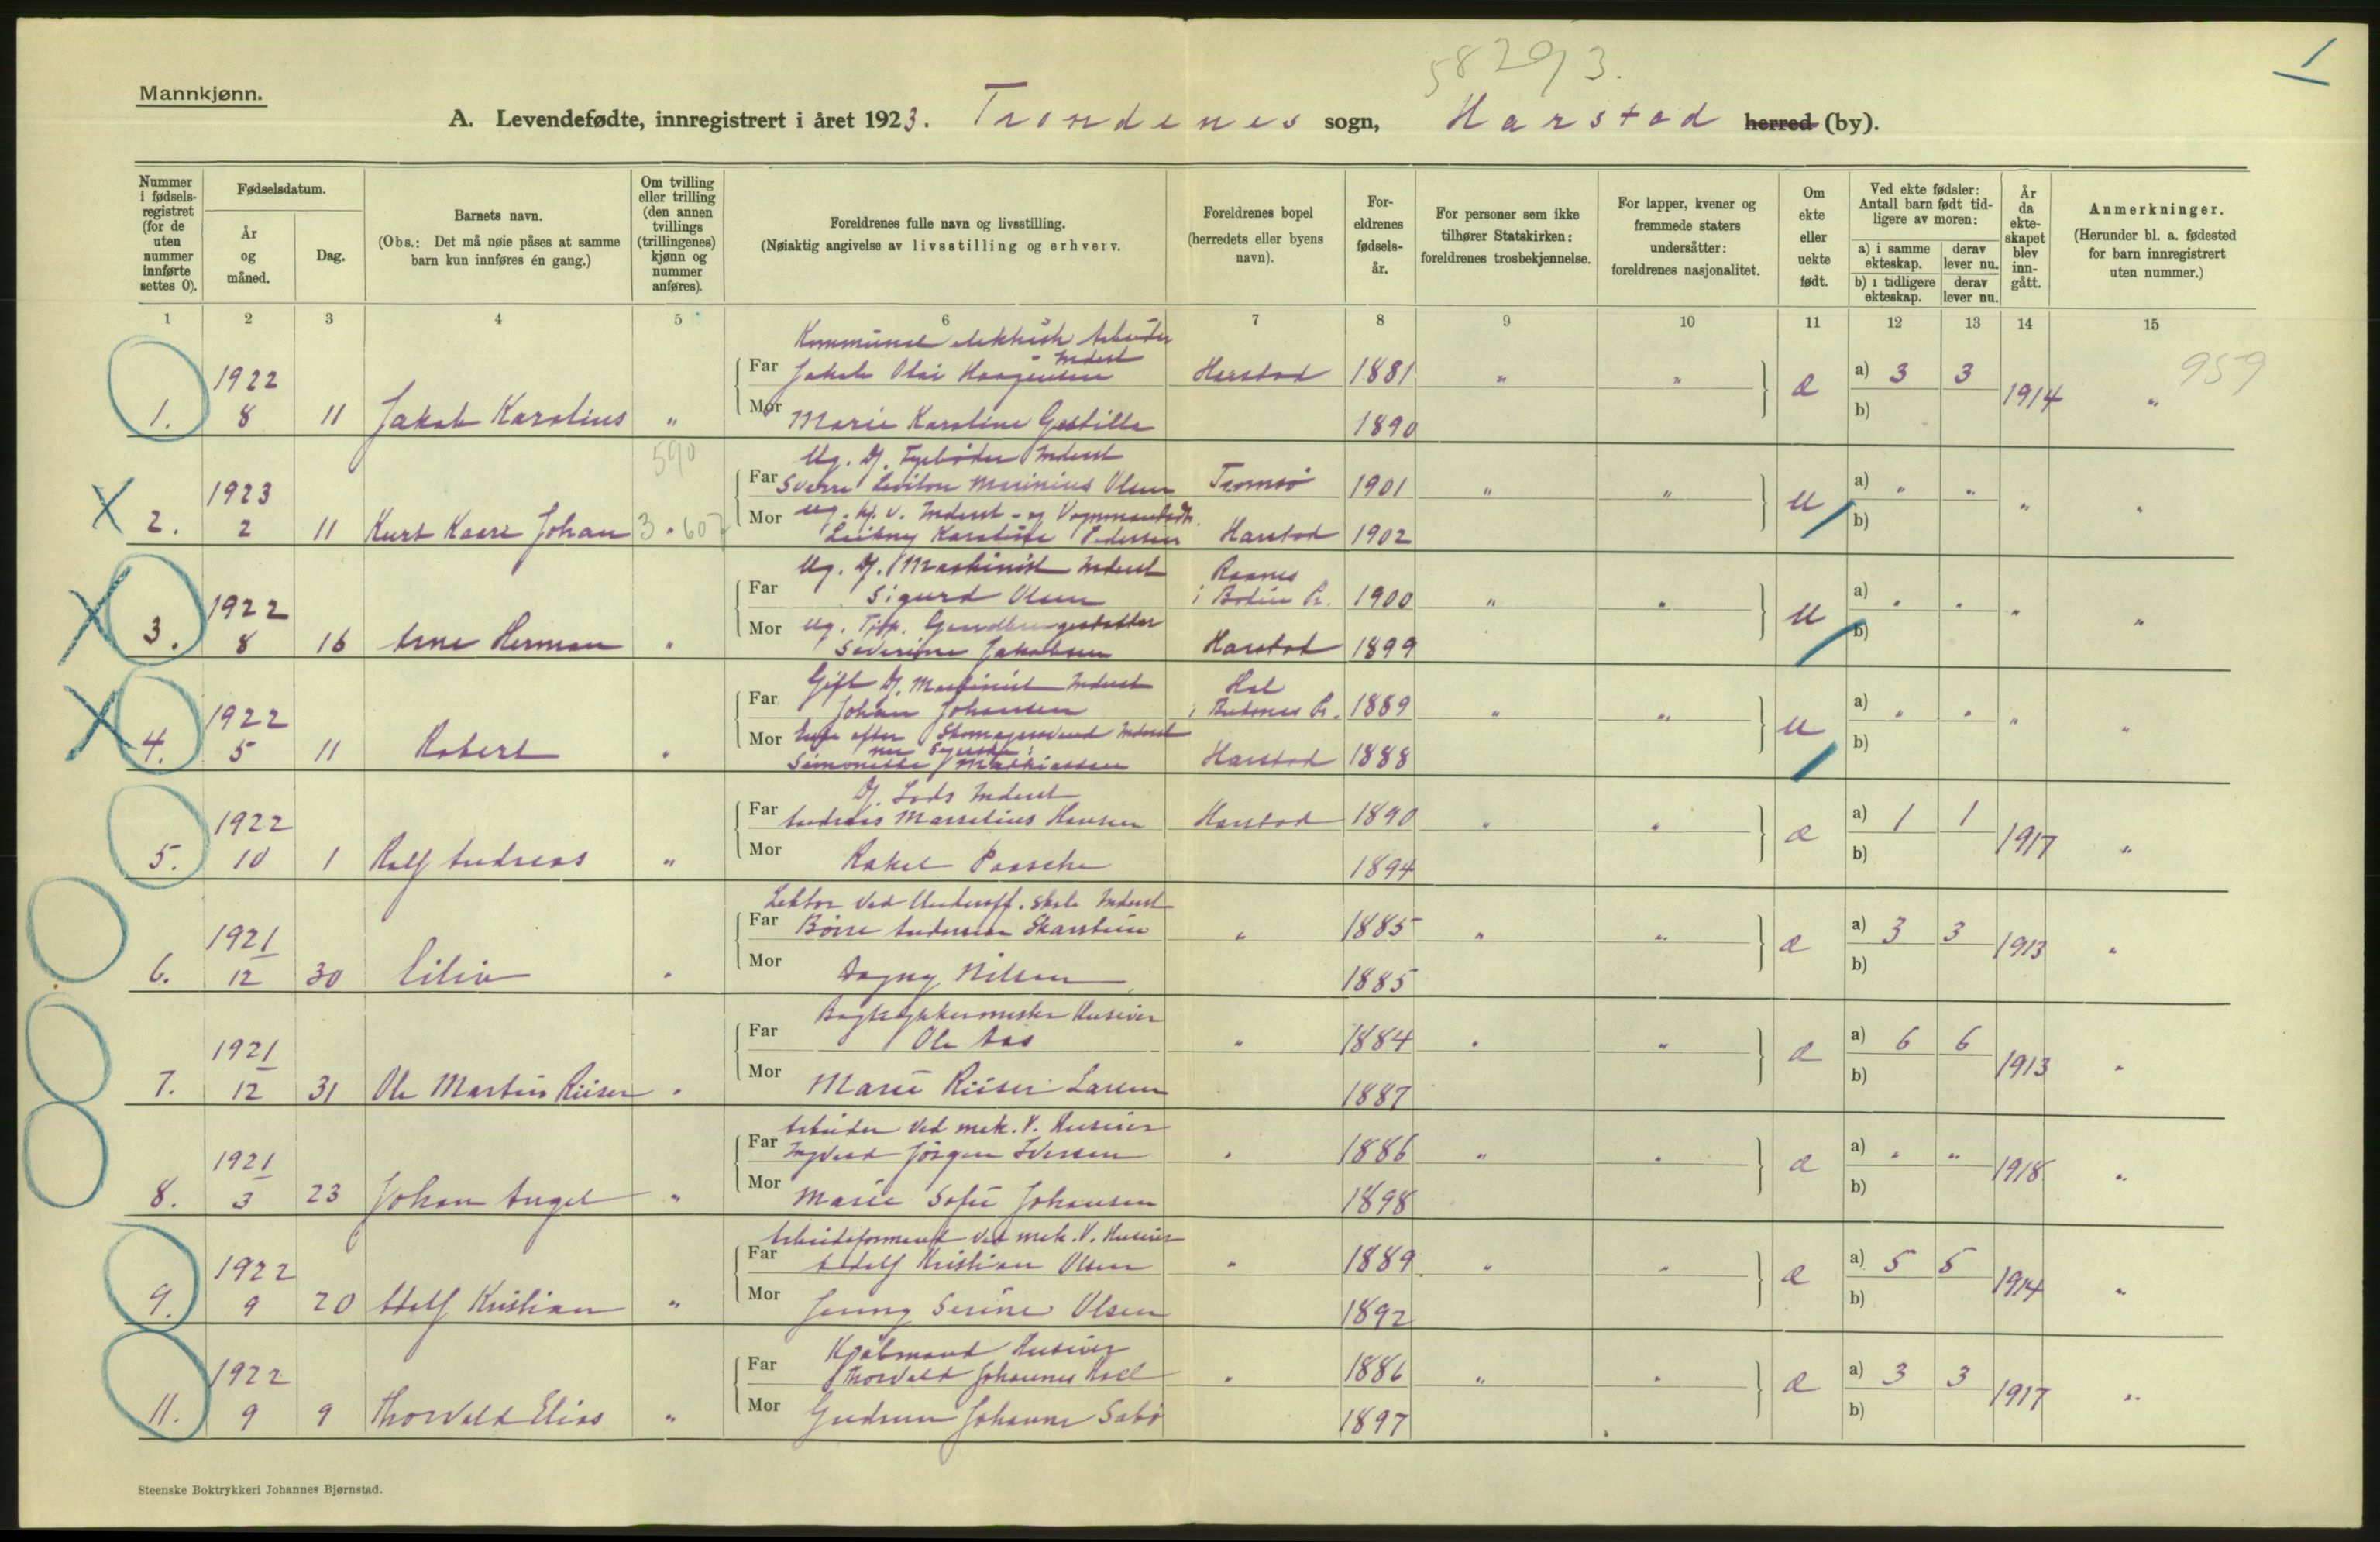 58293.
1
Mannkjønn.
A. Levendefødte, innregistrert i året 1923. Trondenes sogn, Harstad herred (by).
Nummer i fødsels-registret (for de uten nummer innførte settes 0).
Fødselsdatum.
År og måned.
Dag.
Barnets navn.
(Obs.: Det må nøie påses at samme barn kun innføres én gang.)
Om tvilling eller trilling (den annen tvillings (trillingenes) kjønn og nummer anføres).
Foreldrenes fulle navn og livsstilling.
(Nøiaktig angivelse av livsstilling og erhverv.
Foreldrenes bopel (herredets eller byens navn).
For-eldrenes fødsels-år.
For personer som ikke tilhører Statskirken: foreldrenes trosbekjennelse.
For lapper, kvener og fremmede staters undersåtter: foreldrenes nasjonalitet.
Om ekte eller uekte født.
Ved ekte fødsler: Antall barn født tid-ligere av moren:
a) i samme ekteskap.
derav lever nu.
b) i tidligere ekteskap.
derav lever nu.
År da ekte-skapet blev inn-gått.
Anmerkninger.
(Herunder bl. a. fødested for barn innregistrert uten nummer.)
1 2 3 4 5 6 7 8 9 10 11 12 13 14 15
Kommunal elektrisk Arbeider
Inderst
1922 Far Jakob Olai Haagensen Harstad 1881 " " æ a) 3 3 1914 " 959
1. 8 11 Jakob Karolius " Mor Marie Karoline Gastilla 1890 b)
590
Ug. Dj. Fyrbøder Inderst
1923 Far Sverre Leviton Marinius Olsen Tromsø 1901 " " u a) " " " "
Mor ug. Hj. v. Inderst
2. 2 11 Kurt Kaare Johan 3 . 607 Pedersen Harstad 1902 b)
Ug. Dj. Maskinist Inderst
1922 Far Sigurd Olsen i Bodin Pr. 1900 " " u a) " " " "
Mor ug. Tjp.
3. 8 16 Arne Herman " Severine Jakobsen Harstad 1899 b)
Gift Dj. Maskinist Inderst Hol
1922 Far Johan Johansen i Pr. 1889 " " u a) " " " "
Mor Enke efter Skomagersvend Inderst
4. 5 11 Robert " Simonette Mathiassen Harstad 1888 b)
Dj. Lods Inderst
1922 Far Andreas Marselius Hansen Harstad 1890 " " æ a) 1 1 1917 "
5. 10 1 Rolf Andreas " Mor Rakel Paasche 1894 b)
Lektor ved Underoff. skole Inderst
1921 Far Børre Andersen Skarstein " 1885 " " æ a) 3 3 1913 "
6. 12 30 Eiliv " Mor Dagny Nilsen 1885 b)
Bogtrykkermester Huseier
1921 Far Ole Aas " 1884 " " æ a) 6 6 1913 "
7. 12 31 Ole Martin Riiser " Mor Marie Riiser Larsen 1887 b)
Arbeider ved mek. V. Huseier
1921 Far Ingvald Jörgen Iversen " 1886 " " æ a) " " 1918 "
8. 3 23 Johan Angel " Mor Marie Sofie Johansen 1898 b)
Arbeidsformand ved mek. V. Huseier
1922 Far Adolf Kristian Olsen " 1889 " " æ a) 5 5 1914 "
9. 9 20 Adolf Kristian " Mor Jenny Serine Olsen 1892 b)
Kjøbmand Huseier
1922 Far Thorvald Johannes " 1886 " " æ a) 3 3 1917 "
11. 9 9 Thorvald Elias " Mor Gudrun Johanne Sabø 1897 b)
Steenske Boktrykkeri Johannes Bjørnstad.